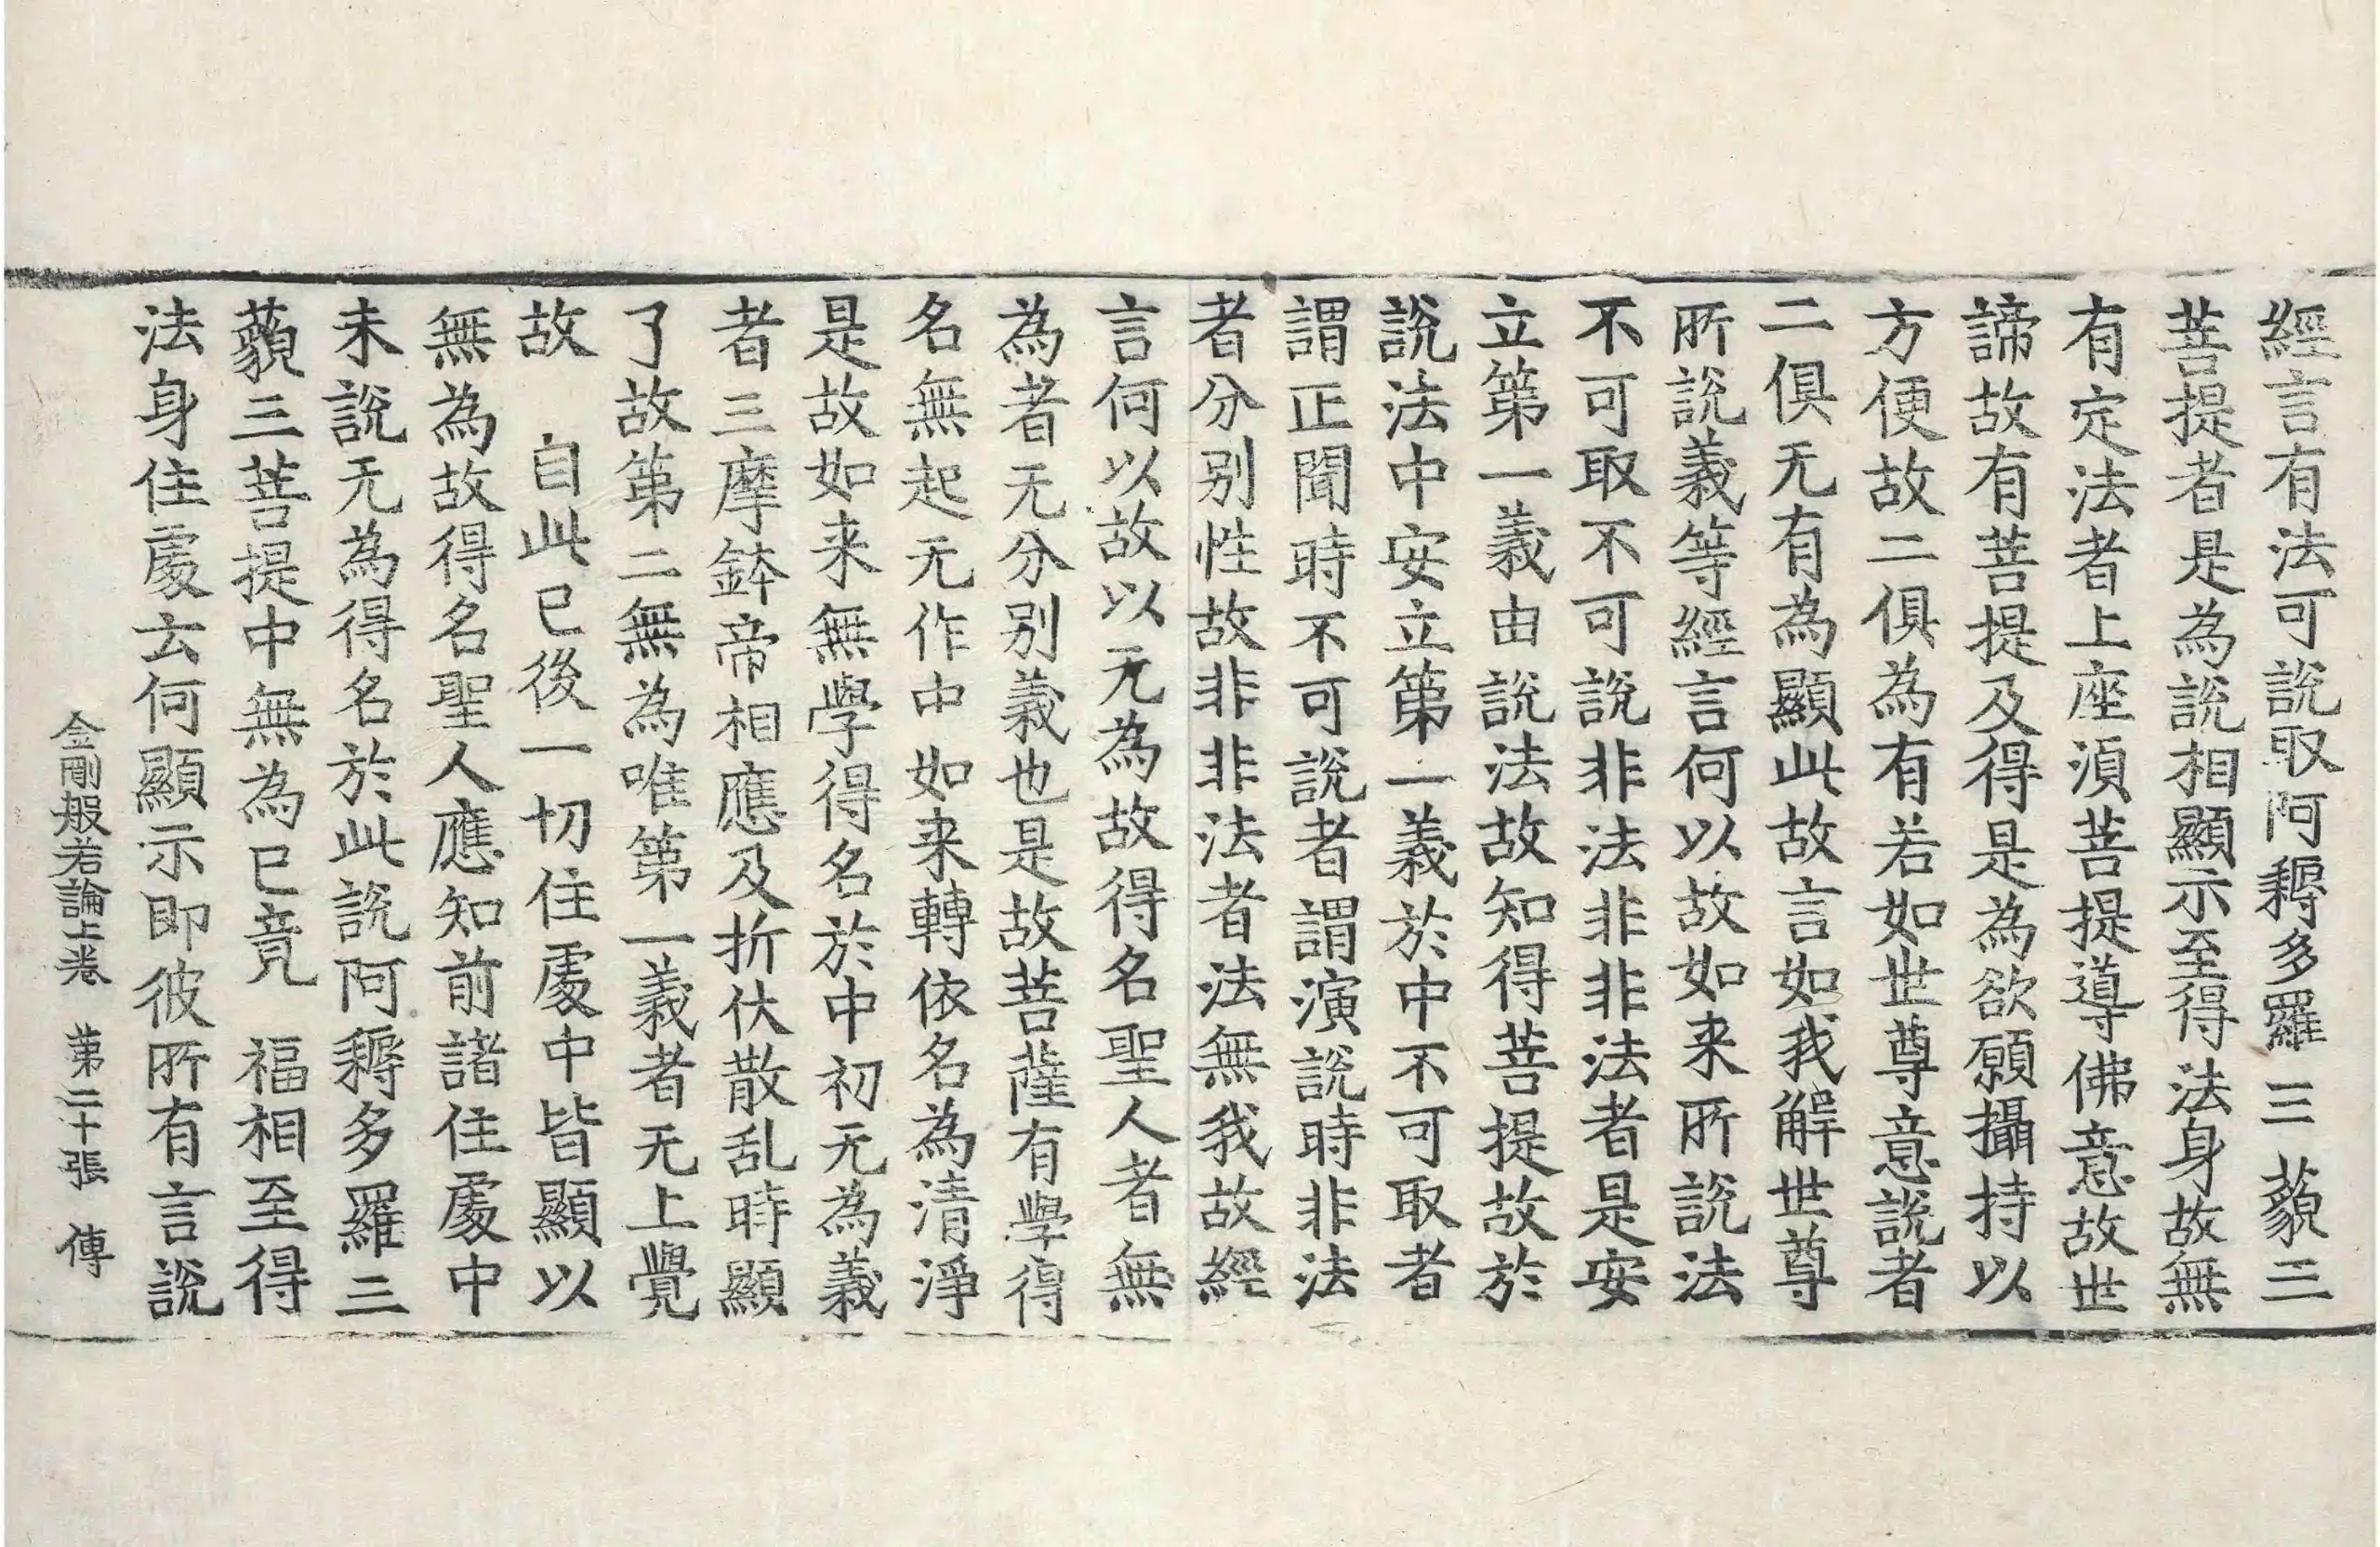 經言有法可說取阿耨多羅三藐三
菩提者是為說相顯示至得法身故無
有定法者上座湏菩提導佛意故世
諦故有菩提及得是為欲願攝持以
方便故二俱為有若如世尊意說者
二俱无有為顯此故言如我解世尊
所說義等經言何以故如来所說法
不可取不可說非法非非法者是安
立第一義由說法故知得菩提故於
說法中安立第一義於中不可取者
謂正聞時不可說者謂演說時非法
者分別性故非非法者法無我故經
言何以故以无為故得名聖人者無
為者无分別義也是故菩薩有學得
名無起无作中如来轉依名為清淨
是故如来無學得名於中初无為義
者三摩鉢帝相應及折伏散乱時顯
了故第二無為唯第一義者无上覺
故　自此已後一切住處中皆顯以
無為故得名聖人應知前諸住處中
未說无為得名於此說阿耨多羅三
藐三菩提中無為已竟　福相至得
法身住處云何顯示即彼所有言說
金剛般若論上卷　苐二十張　傳